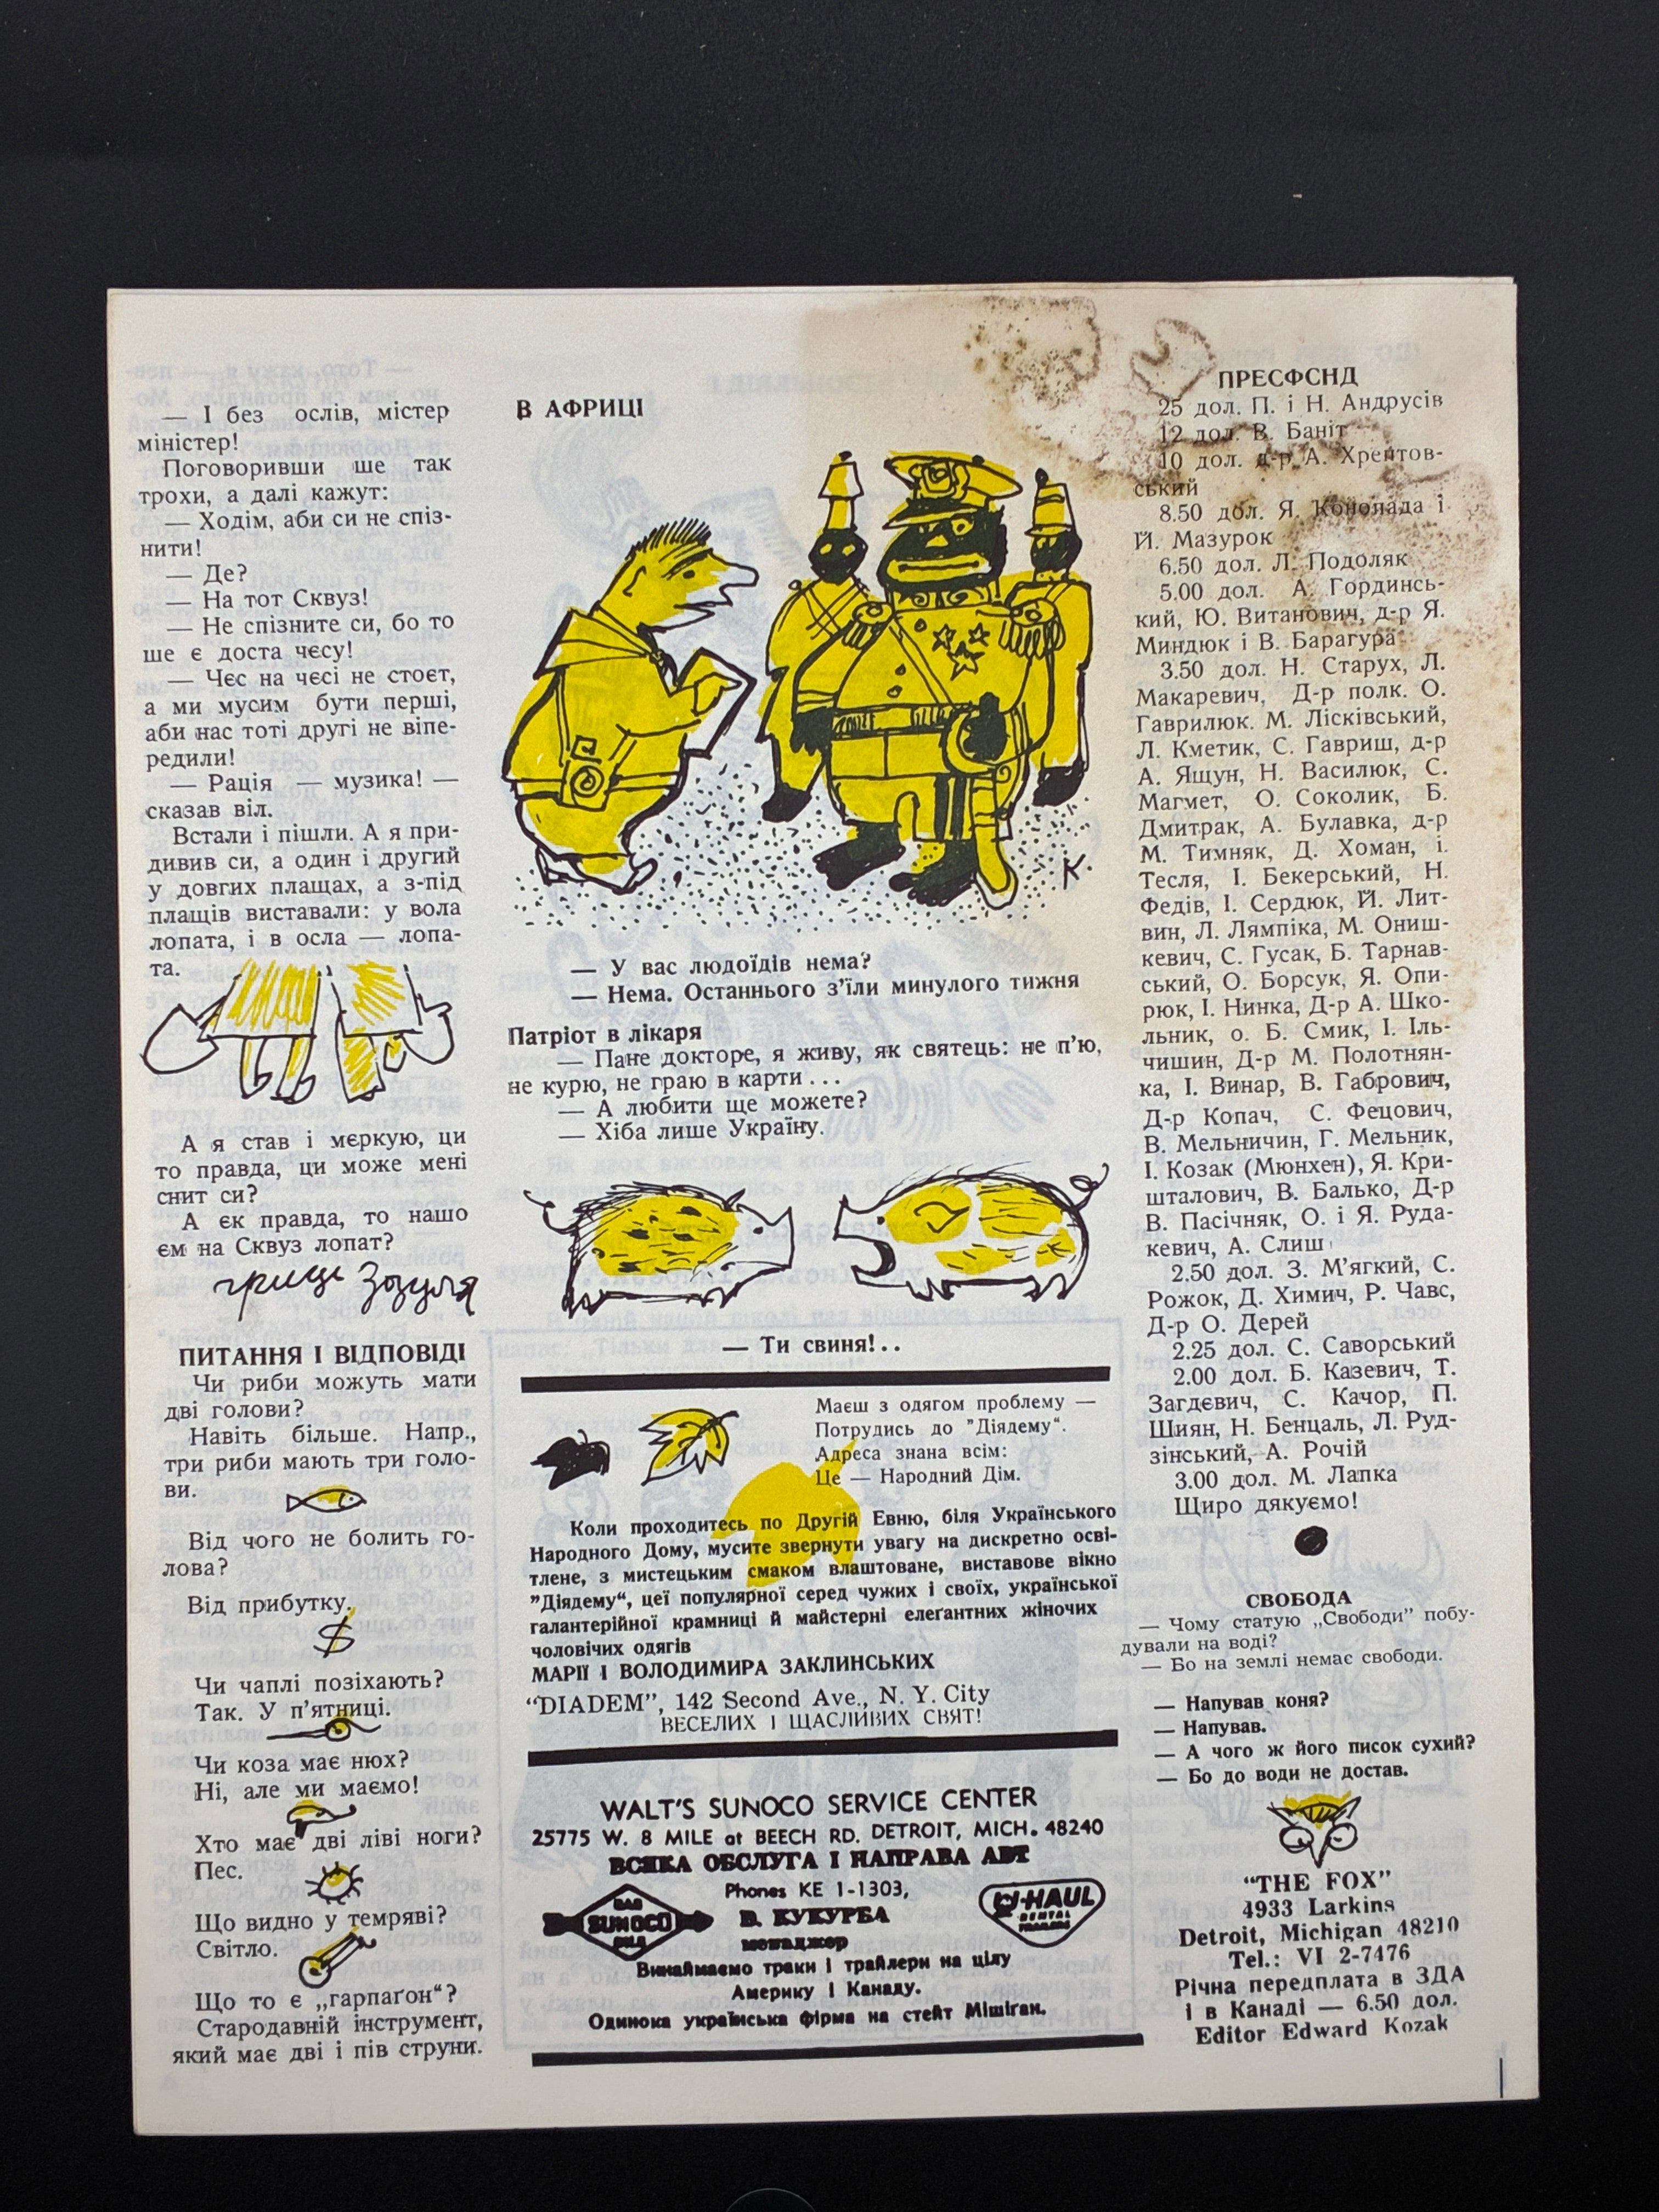 — І без ослів, містер
міністер!
Поговоривши ше так
трохи, а далі кажут:
— Ходім, аби си не спіз-
нити!
— Де?
— На тот Сквуз!
— Не спізните си, бо то
ше є доста чєсу!
— Чєс на чєсі не стоєт,
а ми мусим бути перші,
аби нас тоті другі не віпе-
редили!
— Рація — музика! —
сказав віл.
Встали і пішли. А я при-
дивив си, а один і другий
у довгих плащах, а з-під
плащів виставали: у вола
лопата, і в осла — лопа-
та.
А я став і меркую, ци
то правда, ци може мені
снит си?
А єк правда, то нашо
єм на Сквуз лопат?
Гриць Зозуля
ПИТАННЯ І ВІДПОВІДІ
Чи риби можуть мати
дві голови?
Навіть більше. Напр.,
три риби мають три голо-
ви.
Від чого не болить го-
лова?
Від прибутку.
$
Чи чаплі позіхають?
Так. У п'ятниці.
Чи коза має нюх?
Ні, але ми маємо!
Хто має дві ліві ноги?
Пес.
Що видно у темряві?
Світло.
Що то є „гарпаґон“?
Стародавній інструмент,
який має дві і пів струни.
В АФРИЦІ
К
— У вас людоїдів нема?
— Нема. Останнього з'їли минулого тижня
Патріот в лікаря
— Пане докторе, я живу, як святець: не п'ю,
не курю, не граю в карти . . .
— А любити ще можете?
— Хіба лише Україну.
— Ти свиня!..
Маєш з одягом проблему —
Потрудись до ”Діядему“.
Адреса знана всім:
Це — Народний Дім.
Коли проходитесь по Другій Евню, біля Українського
Народного Дому, мусите звернути увагу на дискретно осві-
тлене, з мистецьким смаком влаштоване, виставове вікно
”Діядему“, цеї популярної серед чужих і своїх, української
галантерійної крамниці й майстерні елеґантних жіночих
чоловічих одягів
МАРІЇ І ВОЛОДИМИРА ЗАКЛИНСЬКИХ
“DIADEM”, 142 Second Ave., N. Y. City
ВЕСЕЛИХ І ЩАСЛИВИХ СВЯТ!
WALT'S SUNOCO SERVICE CENTER
25775 W. 8 MILE at BEECH RD. DETROIT, MICH. 48240
ВСЯКА ОБСЛУГА І НАПРАВА АВТ
Phones KE 1-1303,
SUNOCO
В. КУКУРБА
менаджер
U-HAUL
RENTAL
TRAILERS
Винаймаємо траки і трайлери на цілу
Америку і Канаду.
Одинока українська фірма на стейт Мішіґан.
ПРЕСФСНД
25 дол. П. і Н. Андрусів
12 дол. В. Баніт
10 дол. д-р А. Хрептов-
ський
8.50 дол. Я. Конопада і
Й. Мазурок
6.50 дол. Л. Подоляк
5.00 дол. А. Гординсь-
кий, Ю. Витанович, д-р Я.
Миндюк і В. Барагура
3.50 дол. Н. Старух, Л.
Макаревич, Д-р полк. О.
Гаврилюк. М. Лісківський,
Л. Кметик, С. Гавриш, д-р
А. Ящун, Н. Василюк, С.
Магмет, О. Соколик, Б.
Дмитрак, А. Булавка, д-р
М. Тимняк, Д. Хоман, і.
Тесля, І. Бекерський, Н.
Федів, І. Сердюк, Й. Лит-
вин, Л. Лямпіка, М. Ониш-
кевич, С. Гусак, Б. Тарнав-
ський, О. Борсук, Я. Опи-
рюк, І. Нинка, Д-р А. Шко-
льник, о. Б. Смик, І. Іль-
чишин, Д-р М. Полотнян-
ка, І. Винар, В. Габрович,
Д-р Копач, С. Фецович,
В. Мельничин, Г. Мельник,
І. Козак (Мюнхен), Я. Кри-
шталович, В. Балько, Д-р
В. Пасічняк, О. і Я. Руда-
кевич, А. Слиш
2.50 дол. З. М'ягкий, С.
Рожок, Д. Химич, Р. Чавс,
Д-р О. Дерей
2.25 дол. С. Саворський
2.00 дол. Б. Казевич, Т.
Загдєвич, С. Качор, П.
Шиян, Н. Бенцаль, Л. Руд-
зінський, А. Рочій
3.00 дол. М. Лапка
Щиро дякуємо!
СВОБОДА
— Чому статую „Свободи” побу-
дували на воді?
— Бо на землі немає свободи.
— Напував коня?
— Напував.
— А чого ж його писок сухий?
— Бо до води не достав.
“THE FOX”
4933 Larkins
Detroit, Michigan 48210
Tel.: VI 2-7476
Річна передплата в ЗДА
і в Канаді — 6.50 дол.
Editor Edward Kozak